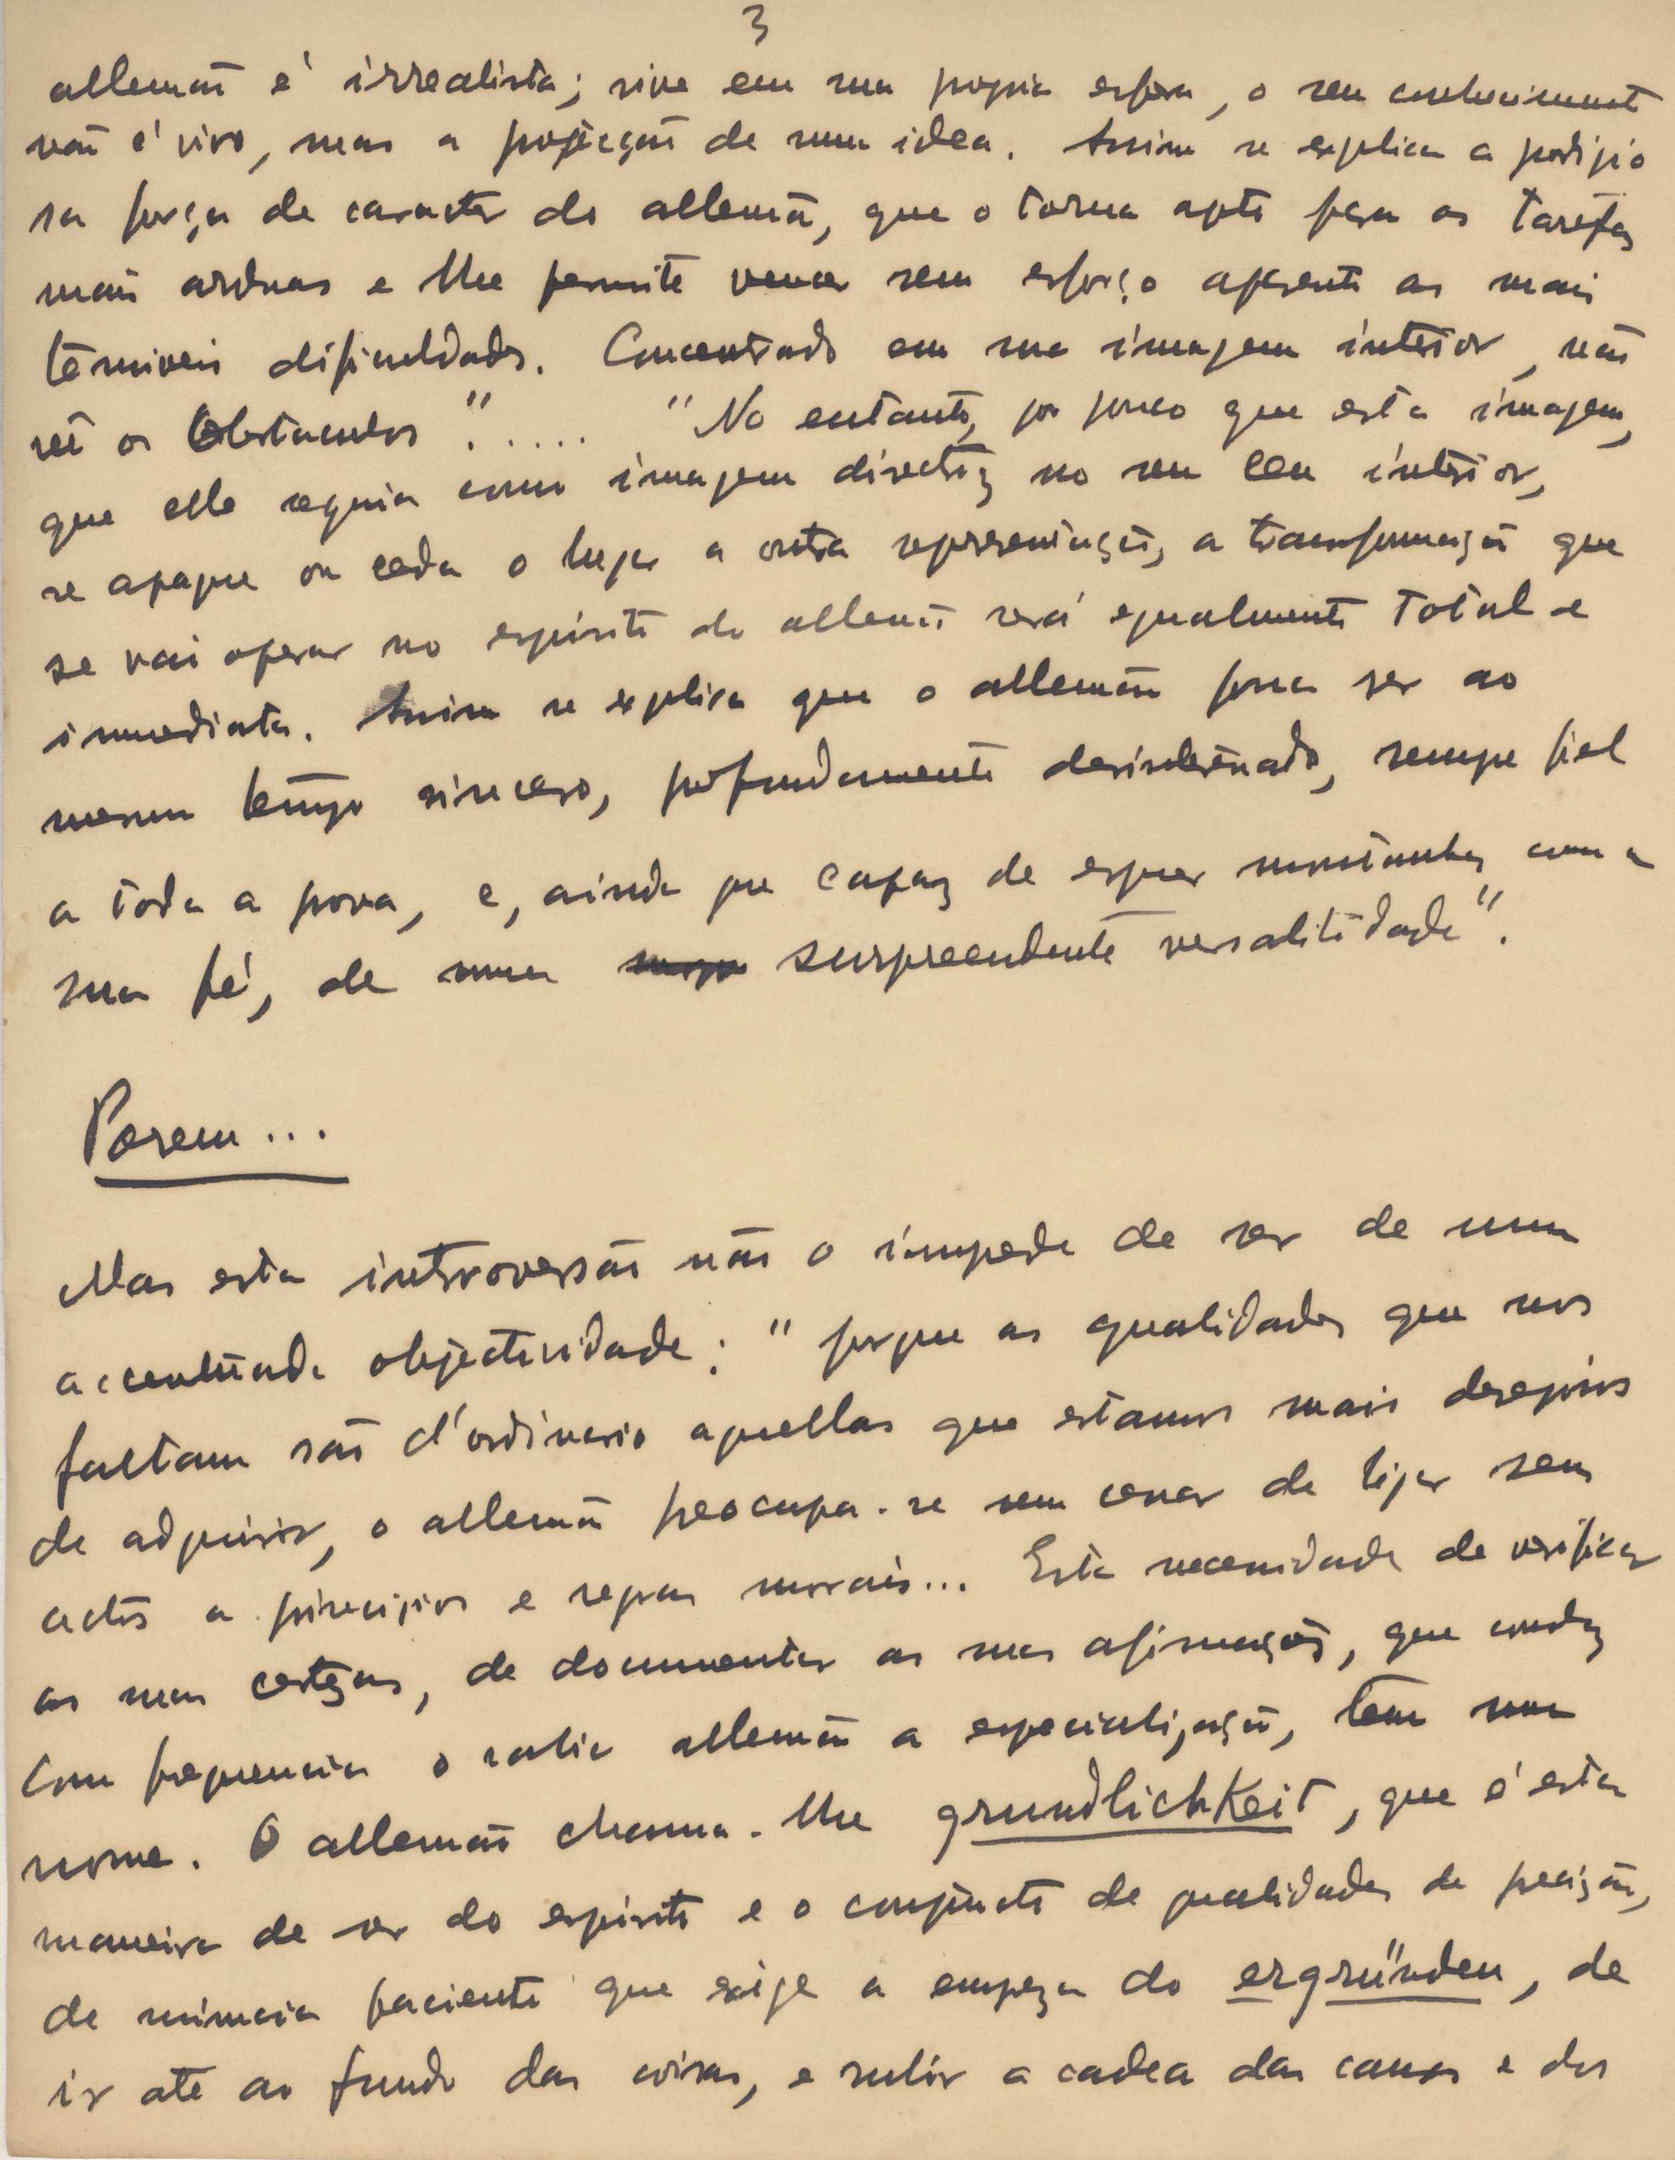 3
allemão é irrealista; vive em sua propria esfera, o seu conhecimento
não é vivo, mas a projecção de uma idea. Assim se explica a prodigio
sa força de caracter do allemão, que o torna apto para as tarefas
mais arduas e lhe permite vencer sem esforço aparente as mais
terriveis dificuldades. Concentrado em sua imagem interior, não
vê os obstaculos"..... "No entanto, por pouco que esta imagem,
que elle seguia como imagem directriz no seu ceu interior,
se apague ou ceda o lugar a outra representação, a transformação que
se vai operar no espirito do allemão será egualmente total e
immediata. Assim se explica que o allemão possa ser ao
mesmo tempo sincero, profundamente desinteressado, sempre fiel
a toda a prova, e, ainda que capaz de erguer montanhas com a
sua fé, de uma surpreendente versalitidade".
Porem...
Mas esta introversão não o impede de ser de uma
accentuada objectividade: "porque as qualidades que nos
faltam são d'ordinario aquellas que estamos mais desejosos
de adquirir, o allemão preocupa-se sem cessar de ligar seus
actos a principios e regras morais... Esta necessidade de verificar
as suas certezas, de documentar as suas afirmações, que conduz
com frequencia o sabio allemão a especialização, tem um
nome. O allemão chama-lhe grundlichkeit, que é esta
maneira de ser do espirito e o conjuncto de qualidades de precizão,
de minucia paciente que exige a empreza do ergründen, de
ir até ao fundo das coisas, e subir a cadea das causas e dos